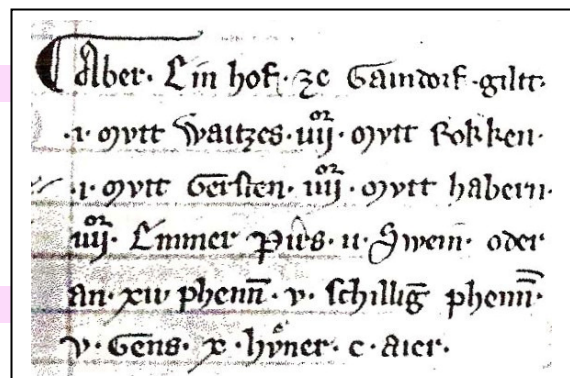 Aber · Ein hof · ze Gaindorf · giltt ·
· i · mvtt Waitzes · iiijor · mvtt Rokken ·
· i · mvtt Gersten · iiijor · mvtt habern ·
iiijor · Emmer Pirs · ii · Swein · oder
an · xii phenn̄ · v · schilliḡ phenn̄ ·
v · Gens · x · hvͦner · c · aier ·